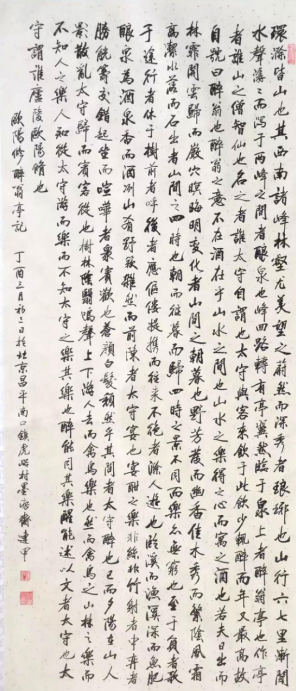 環滁皆山也其西南諸峰林壑尤美望之蔚然而深秀者瑯琊也山行六七里漸聞
水聲潺潺而瀉于兩峰之間者釀泉也峰回路轉有亭翼然臨于泉上者醉翁亭也作亭
者誰山之僧智仙也名之者誰太守自謂也太守與客來飲于此飲少輒醉而年又最高故
自號曰醉翁也醉翁之意不在酒在乎山水之間也山水之樂得之心而寓之酒也若夫日出而
林霏開雲歸而巖穴暝晦明變化者山間之朝暮也野芳發而幽香佳木秀而繁陰風霜
高潔水落而石出者山間之四時也朝而往暮而歸四時之景不同而樂亦無窮也至于負者歌
于途行者休于樹前者呼後者應傴僂提攜而往來不絕者滁人遊也臨溪而漁溪深而魚肥
釀泉為酒泉香而酒洌山肴野蔌雜然而前陳者太守宴也宴酣之樂非絲非竹射者中弈者
勝觥籌交錯起坐而喧嘩者眾賓歡也蒼顏白髮頹然乎其間者太守醉也已而夕陽在山人
影散亂太守歸而賓客從也樹林陰翳鳴聲上下遊人去而禽鳥樂也然而禽鳥知山林之樂而
不知人之樂人知從太守游而樂而不知太守之樂其樂也醉能同其樂醒能述以文者太守也太
守謂誰廬陵歐陽脩也
歐陽脩醉翁亭記 丁酉三月初二日於北京昌平南口鎮虎峪村墨 齋建甲